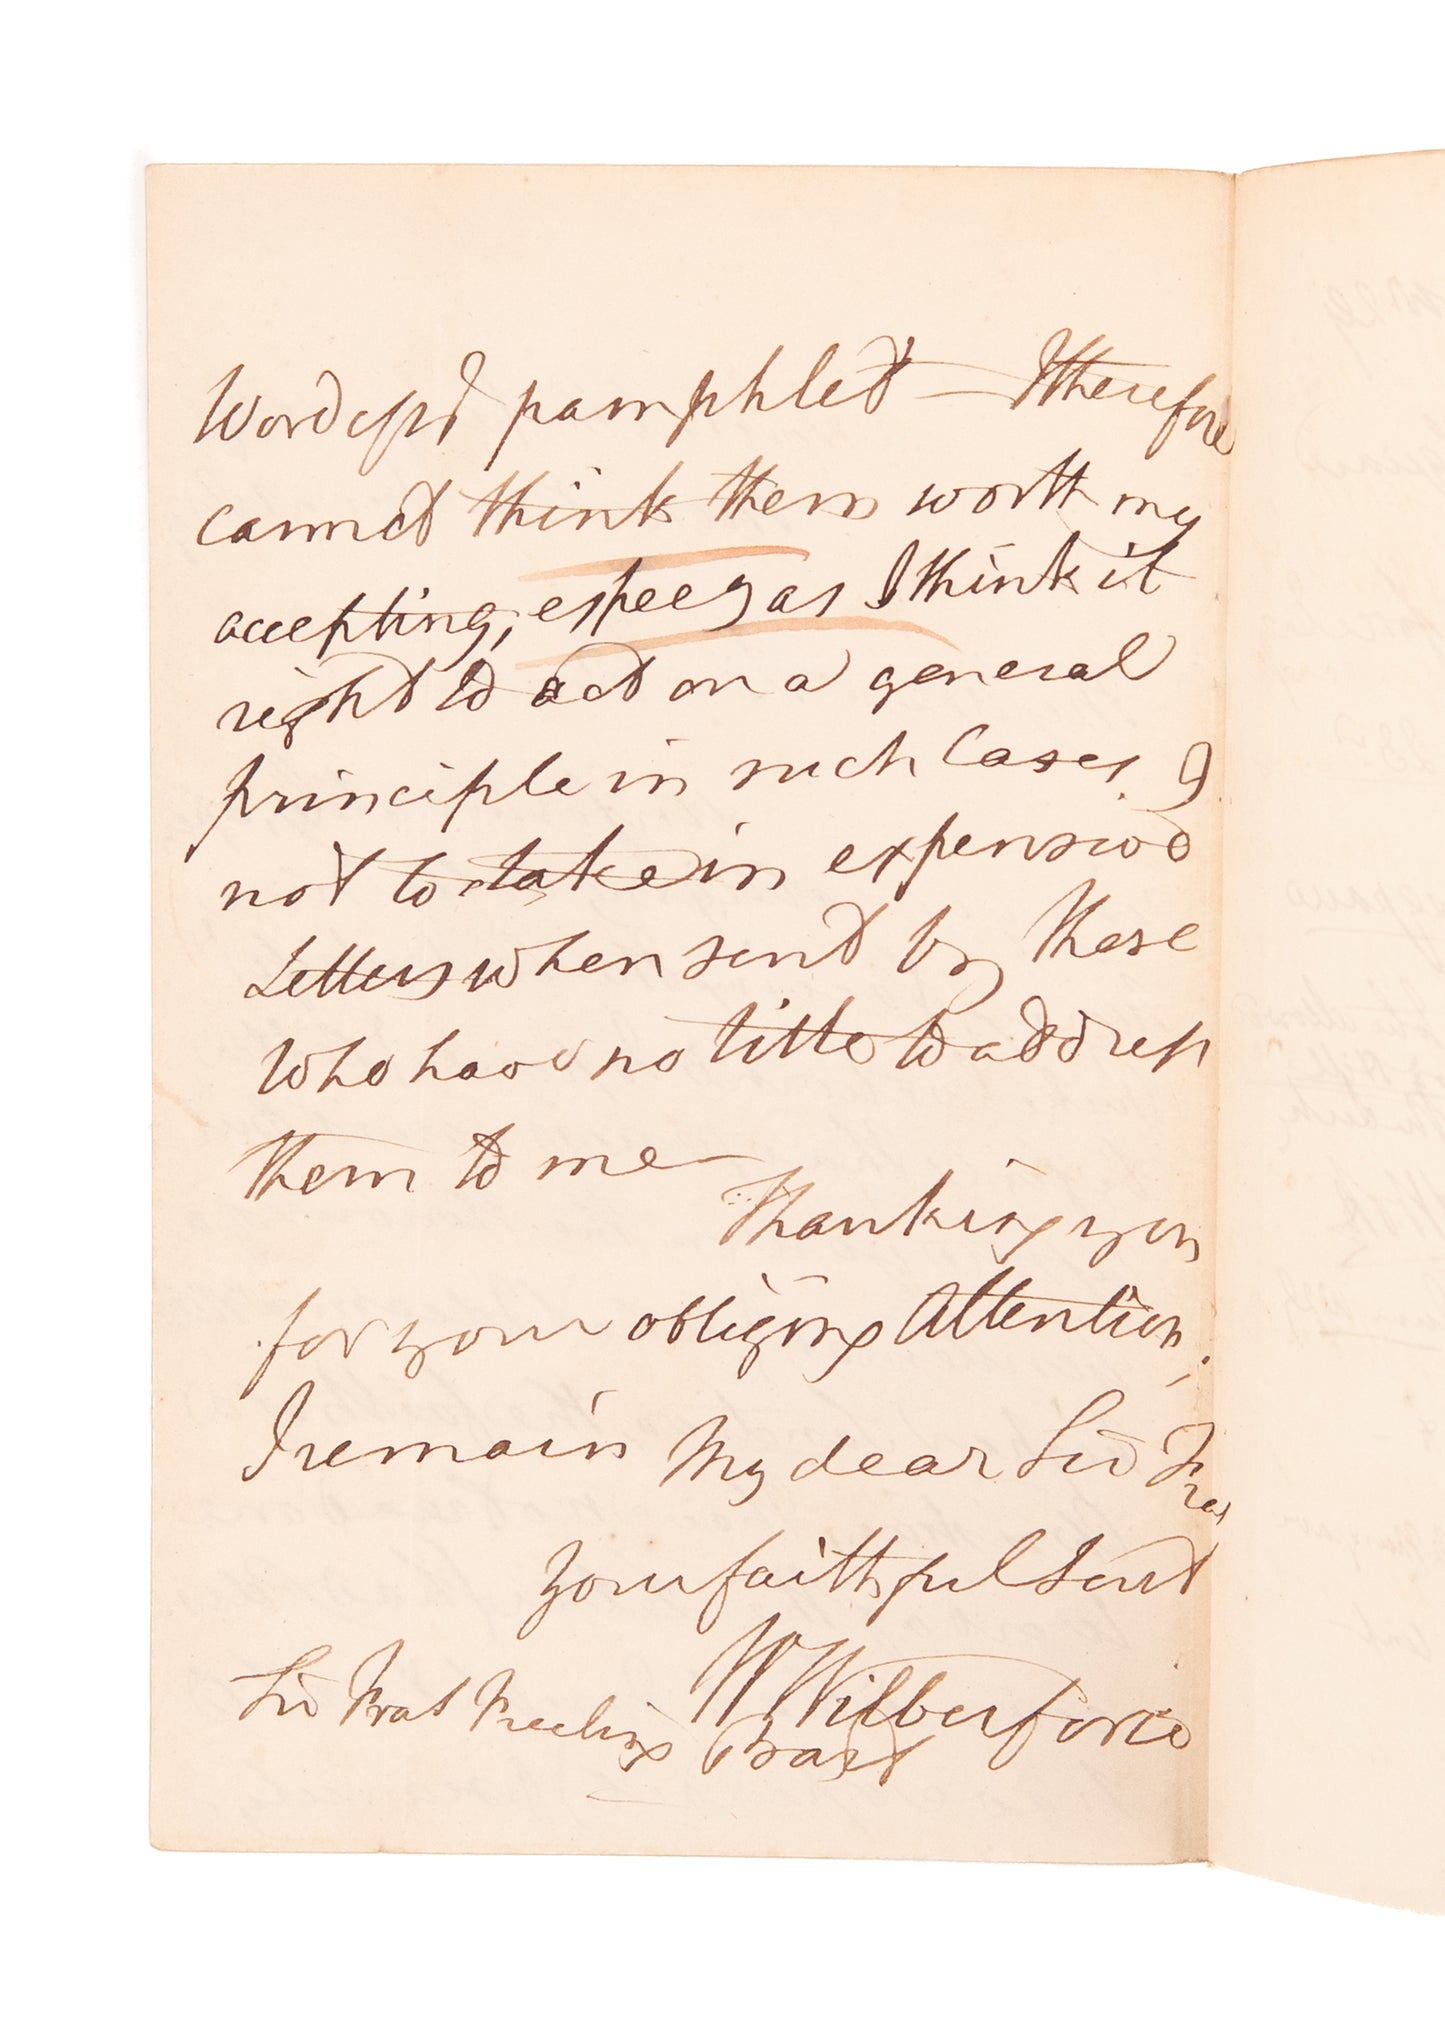 pamphlet — I therefore
cannot think them worth my
accepting, espec.y as I think it
right to act on a general
principle in such Cases, &
not to take in expensive
Letters when sent by those
who have no title to address
them to me —
Thanking you
for your obliging Attention,
I remain My dear Sir Fras
Your faithful Servt
W Wilberforce
Sir Fras Freeling Bart